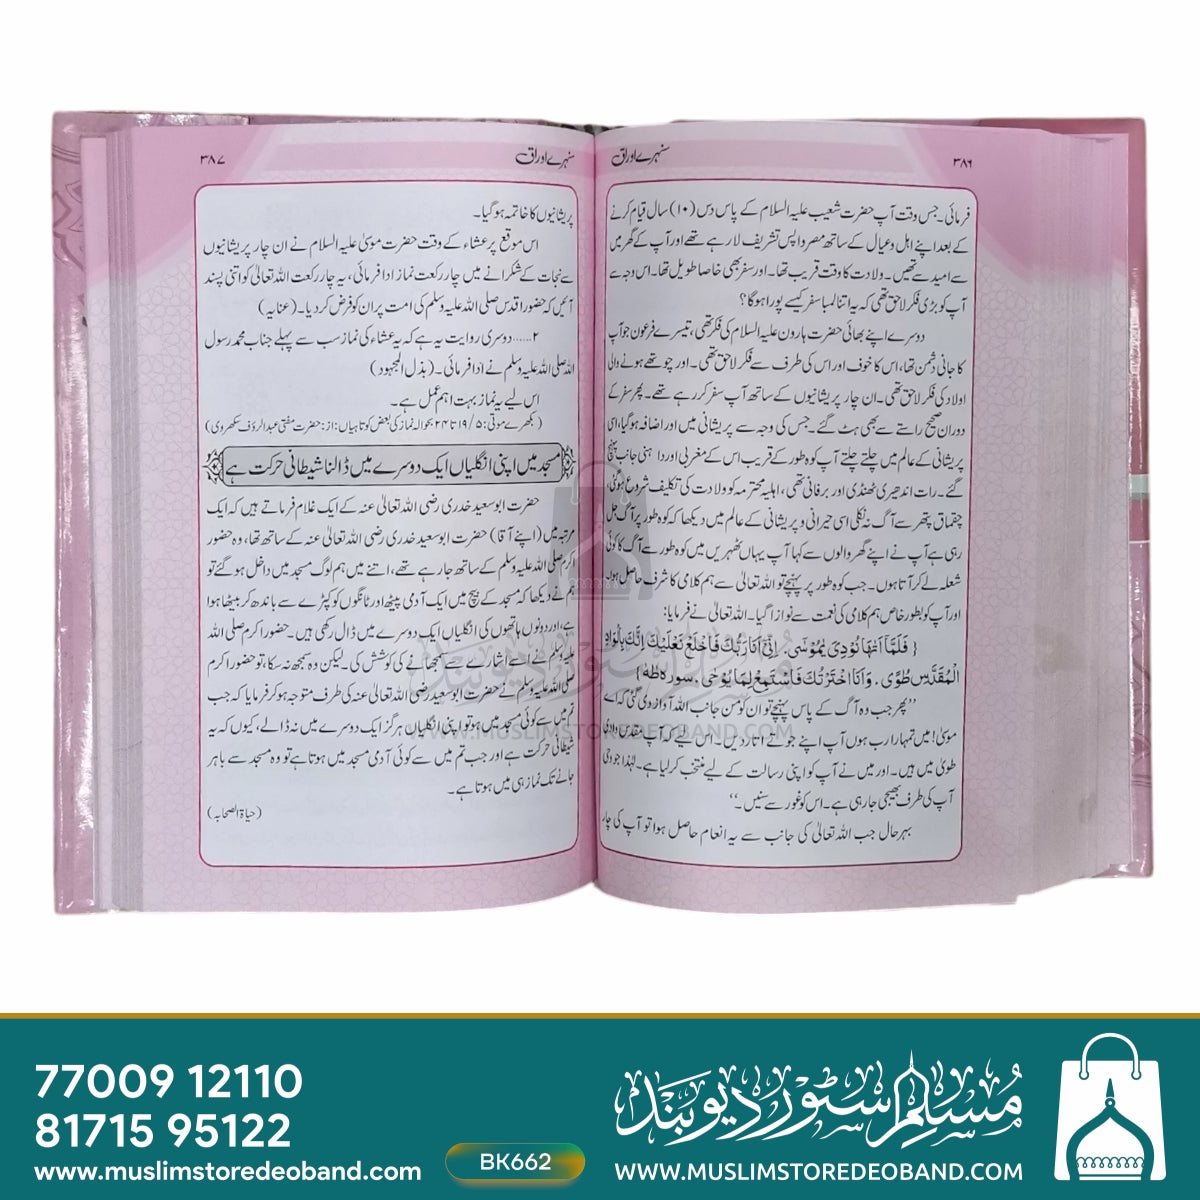 ۳۸۶
سنہرے اوراق
فرمائی۔ جس وقت آپ حضرت شعیب علیہ السلام کے پاس دس (۱۰) سال قیام کرنے
کے بعد اپنے اہل و عیال کے ساتھ مصر واپس تشریف لا رہے تھے اور آپ کے گھر میں
سے امید سے تھیں۔ ولادت کا وقت قریب تھا۔ اور سفر بھی خاصا طویل تھا۔ اس وجہ سے
آپ کو بڑی فکر لاحق تھی کہ یہ اتنا لمبا سفر کیسے پورا ہوگا؟
دوسرے اپنے بھائی حضرت ہارون علیہ السلام کی فکر تھی، تیسرے فرعون جو آپ
کا جانی دشمن تھا، اس کا خوف اور اس کی طرف سے فکر لاحق تھی۔ اور چوتھے ہونے والی
اولاد کی فکر لاحق تھی۔ ان چار پریشانیوں کے ساتھ آپ سفر کر رہے تھے۔ پھر سفر کے
دوران صحیح راستے سے بھی ہٹ گئے۔ جس کی وجہ سے پریشانی میں اور اضافہ ہو گیا، اسی
پریشانی کے عالم میں چلتے چلتے آپ کوہ طور کے قریب اس کے مغربی اور داہنی جانب پہنچ
گئے۔ رات اندھیری ٹھنڈی اور برفانی تھی، اہلیہ محترمہ کو ولادت کی تکلیف شروع ہو گئی،
چقماق پتھر سے آگ نہ نکلی اسی حیرانی و پریشانی کے عالم میں دیکھا کہ کوہ طور پر آگ جل
رہی ہے آپ نے اپنے گھر والوں سے کہا آپ یہاں ٹھہریں میں کوہ طور سے آگ کا کوئی
شعلہ لے کر آتا ہوں۔ جب کوہ طور پر پہنچے تو اللہ تعالیٰ سے ہم کلامی کا شرف حاصل ہوا۔
اور آپ کو بطور خاص ہم کلامی کی نعمت سے نوازا گیا۔ اللہ تعالیٰ نے فرمایا:
{ فَلَمَّا اَتٰهَا نُوْدِیَ یٰمُوْسٰی. اِنِّیْ اَنَا رَبُّكَ فَاخْلَعْ نَعْلَیْكَ اِنَّكَ بِالْوَادِ
الْمُقَدَّسِ طُوًی. وَاَنَا اخْتَرْتُكَ فَاسْتَمِعْ لِمَا یُوْحٰی. سورہ طٰہٰ}
”پھر جب وہ آگ کے پاس پہنچے تو ان کو من جانب اللہ آواز دی گئی کہ اے
موسیٰ! میں تمہارا رب ہوں آپ اپنے جوتے اتار دیں۔ اس لیے کہ آپ مقدس وادی
طویٰ میں ہیں۔ اور میں نے آپ کو اپنی رسالت کے لیے منتخب کر لیا ہے۔ لہٰذا جو وحی
آپ کی طرف بھیجی جا رہی ہے۔ اس کو غور سے سنیں۔“
بہر حال جب اللہ تعالیٰ کی جانب سے یہ انعام حاصل ہوا تو آپ کی چار
سنہرے اوراق
۳۸۷
پریشانیوں کا خاتمہ ہو گیا۔
اس موقع پر عشاء کے وقت حضرت موسیٰ علیہ السلام نے ان چار پریشانیوں
سے نجات کے شکرانے میں چار رکعت نماز ادا فرمائی، یہ چار رکعت اللہ تعالیٰ کو اتنی پسند
آئیں کہ حضور اقدس صلی اللہ علیہ وسلم کی امت پر ان کو فرض کر دیا۔ (عنایہ)
۲.....دوسری روایت یہ ہے کہ یہ عشاء کی نماز سب سے پہلے جناب محمد رسول
اللہ صلی اللہ علیہ وسلم نے ادا فرمائی۔ (بذل المجہود)
اس لیے یہ نماز بہت اہم عمل ہے۔
( بکھرے موتی: ۵/ ۱۹ تا ۲۴ بحوالہ نماز کی بعض کوتاہیاں: از: حضرت مفتی عبدالرؤف سکھروی)
مسجد میں اپنی انگلیاں ایک دوسرے میں ڈالنا شیطانی حرکت ہے
حضرت ابو سعید خدری رضی اللہ تعالیٰ عنہ کے ایک غلام فرماتے ہیں کہ ایک
مرتبہ میں (اپنے آقا) حضرت ابو سعید خدری رضی اللہ تعالیٰ عنہ کے ساتھ تھا، وہ حضور
اکرم صلی اللہ علیہ وسلم کے ساتھ جا رہے تھے، اتنے میں ہم لوگ مسجد میں داخل ہو گئے تو
ہم نے دیکھا کہ مسجد کے بیچ میں ایک آدمی پیٹھ اور ٹانگوں کو کپڑے سے باندھ کر بیٹھا ہوا
ہے، اور دونوں ہاتھوں کی انگلیاں ایک دوسرے میں ڈال رکھی ہیں۔ حضور اکرم صلی اللہ
علیہ وسلم نے اسے اشارے سے سمجھانے کی کوشش کی۔ لیکن وہ سمجھ نہ سکا، تو حضور اکرم
صلی اللہ علیہ وسلم نے حضرت ابو سعید رضی اللہ تعالیٰ عنہ کی طرف متوجہ ہو کر فرمایا کہ جب
تم میں سے کوئی مسجد میں ہو تو اپنی انگلیاں ہرگز ایک دوسرے میں نہ ڈالے، کیوں کہ یہ
شیطانی حرکت ہے اور جب تم میں سے کوئی آدمی مسجد میں ہوتا ہے تو وہ مسجد سے باہر
جانے تک نماز ہی میں ہوتا ہے۔
(حیاۃ الصحابہ)
مسلم سٹور دیوبند
WWW.MUSLIMSTOREDEOBAND.COM
77009 12110
81715 95122
www.muslimstoredeoband.com
BK662
مسلم سٹور دیوبند
WWW.MUSLIMSTOREDEOBAND.COM